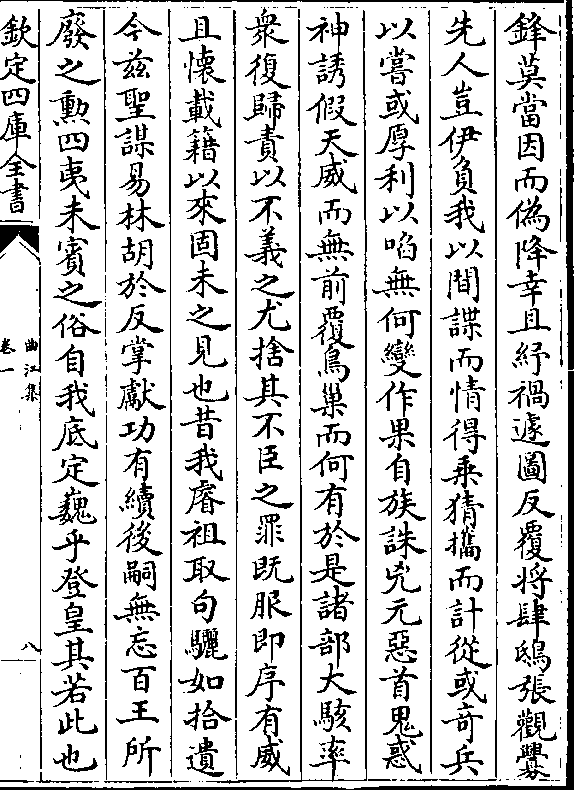 鋒莫當因而偽降幸且紓禍遽圖反覆將肆鴟張觀釁
先人豈伊負我以間諜而情得乗猜攜而計從或竒兵
以嘗或厚利以啗無何變作果自族誅兇元惡首鬼惑
神誘假天威而無前覆鳥巢而何有於是諸部大駭率
衆復歸責以不義之尤捨其不臣之罪既服即序有威
且懷載籍以來固未之見也昔我睿祖取句驪如拾遺
今兹聖謀易林胡於反掌獻功有續後嗣無忘百王所
廢之勲四夷未賓之俗自我底定巍乎登皇其若此也
欽定四庫全書
曲江集
卷一
八